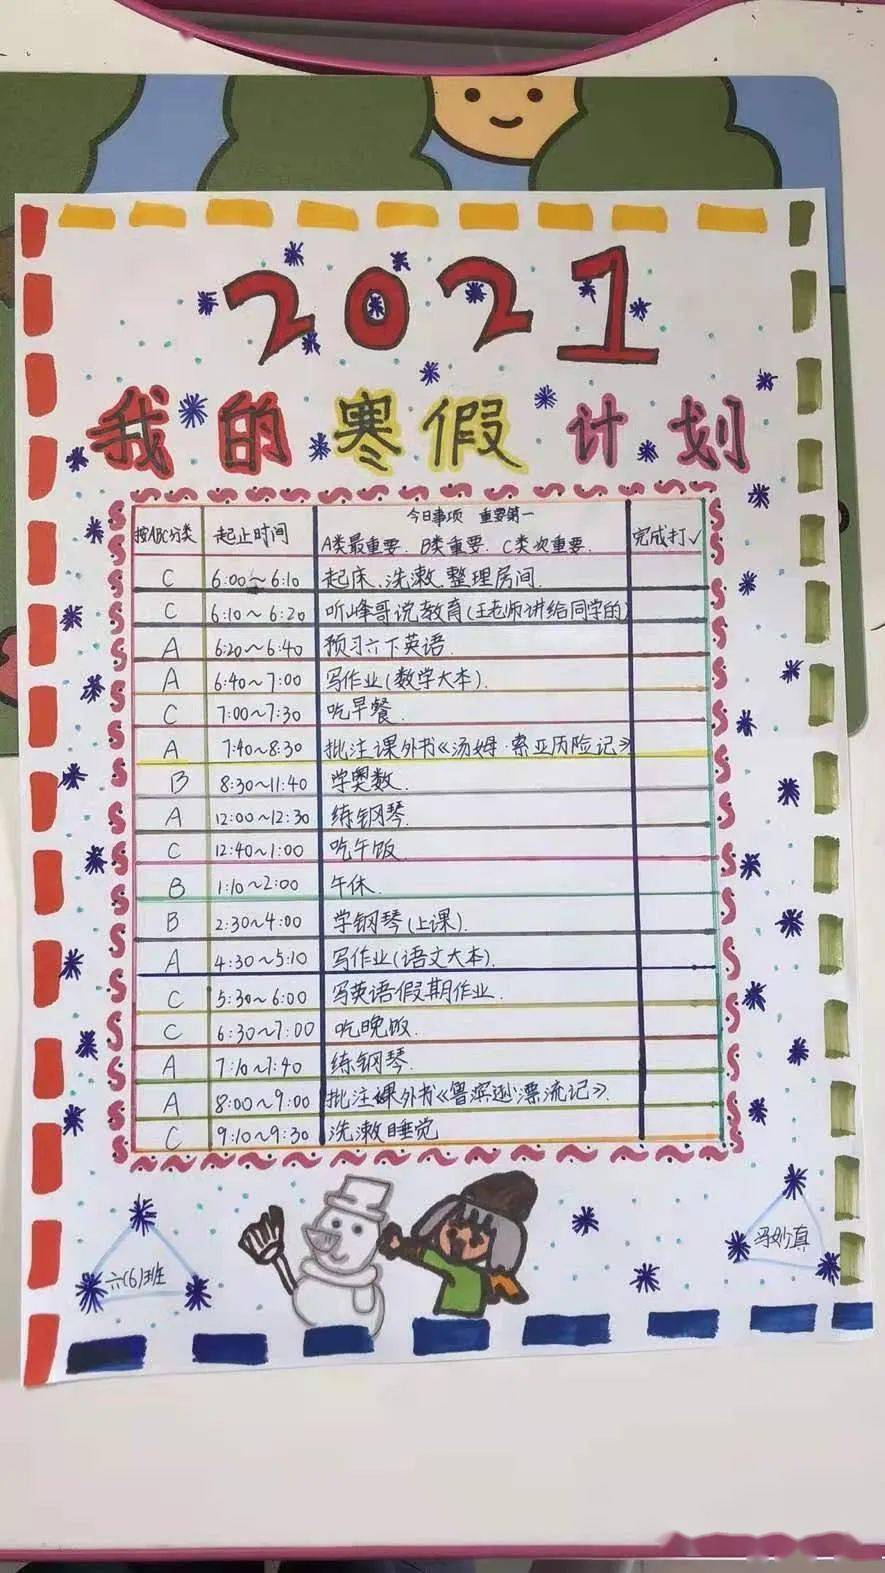 2021
我的寒假计划
按ABC分类 起止时间 今日事项 重要第一 完成打√
A类最重要. B类重要. C类次重要.
C 6:00~6:10 起床.洗漱.整理房间.
C 6:10~6:20 听峰哥说教育(王老师讲给同学的)
A 6:20~6:40 预习六下英语.
A 6:40~7:00 写作业(数学大本).
C 7:00~7:30 吃早餐.
A 7:40~8:30 批注课外书《汤姆·索亚历险记》
B 8:30~11:40 学奥数.
A 12:00~12:30 练钢琴.
C 12:40~1:00 吃午饭.
B 1:10~2:00 午休.
B 2:30~4:00 学钢琴(上课).
A 4:30~5:10 写作业(语文大本).
C 5:30~6:00 写英语假期作业.
C 6:30~7:00 吃晚饭.
A 7:10~7:40 练钢琴.
A 8:00~9:00 批注课外书《鲁滨逊漂流记》.
C 9:10~9:30 洗漱睡觉
六(6)班
冯妙真